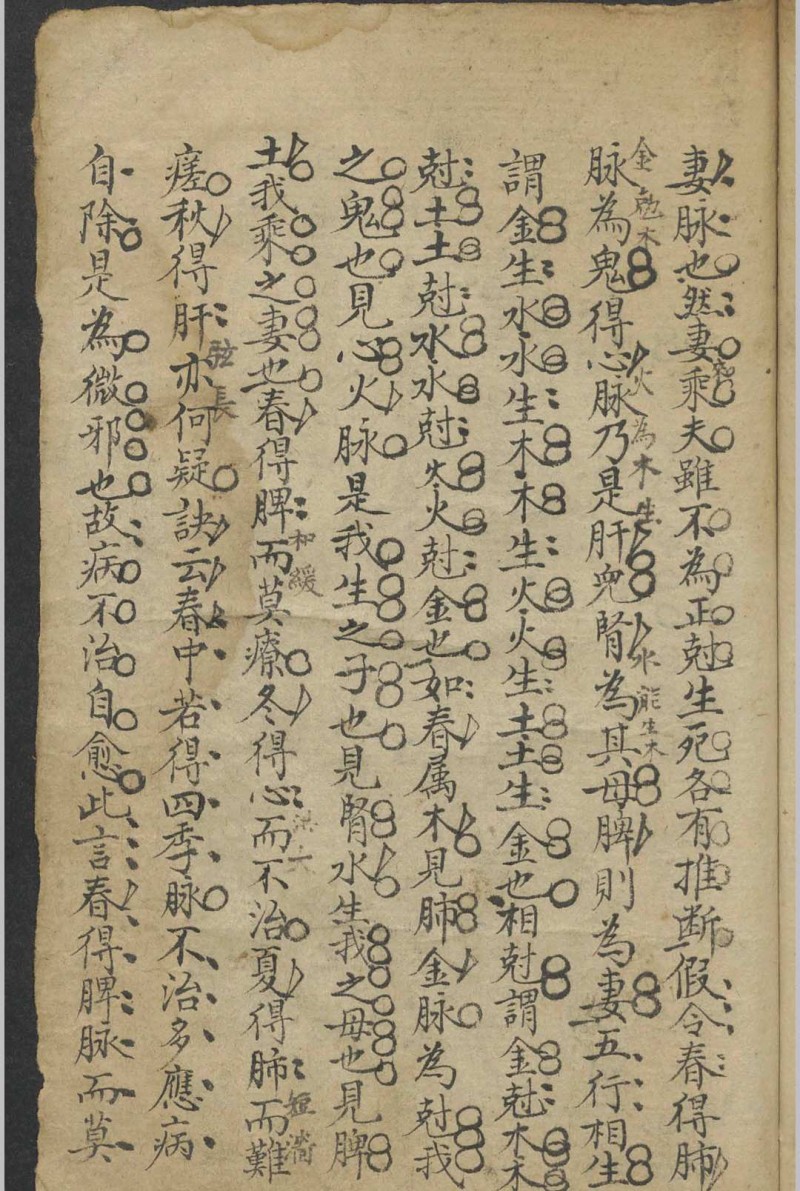 妻脉也然妻乘夫雖不為正尅生死各有推断假令春得肺
脉為鬼得心脉乃是肝兒腎為其母脾則為妻五行相生
金尅木
火為木生
水能生木
謂金生水水生木木生火火生土土生金也相尅謂金尅木木
尅土土尅水水尅火火尅金也如春属木見肺金脉為尅我
之鬼也見心火脉是我生之子也見腎水生我之母也見脾
土我乘之妻也春得脾而莫療冬得心而不治夏得肺而難
和緩
洪大
短濇
瘥秋得肝亦何疑訣云春中若得四季脉不治多應病
弦長
自除是為微邪也故病不治自愈此言春得脾脉而莫